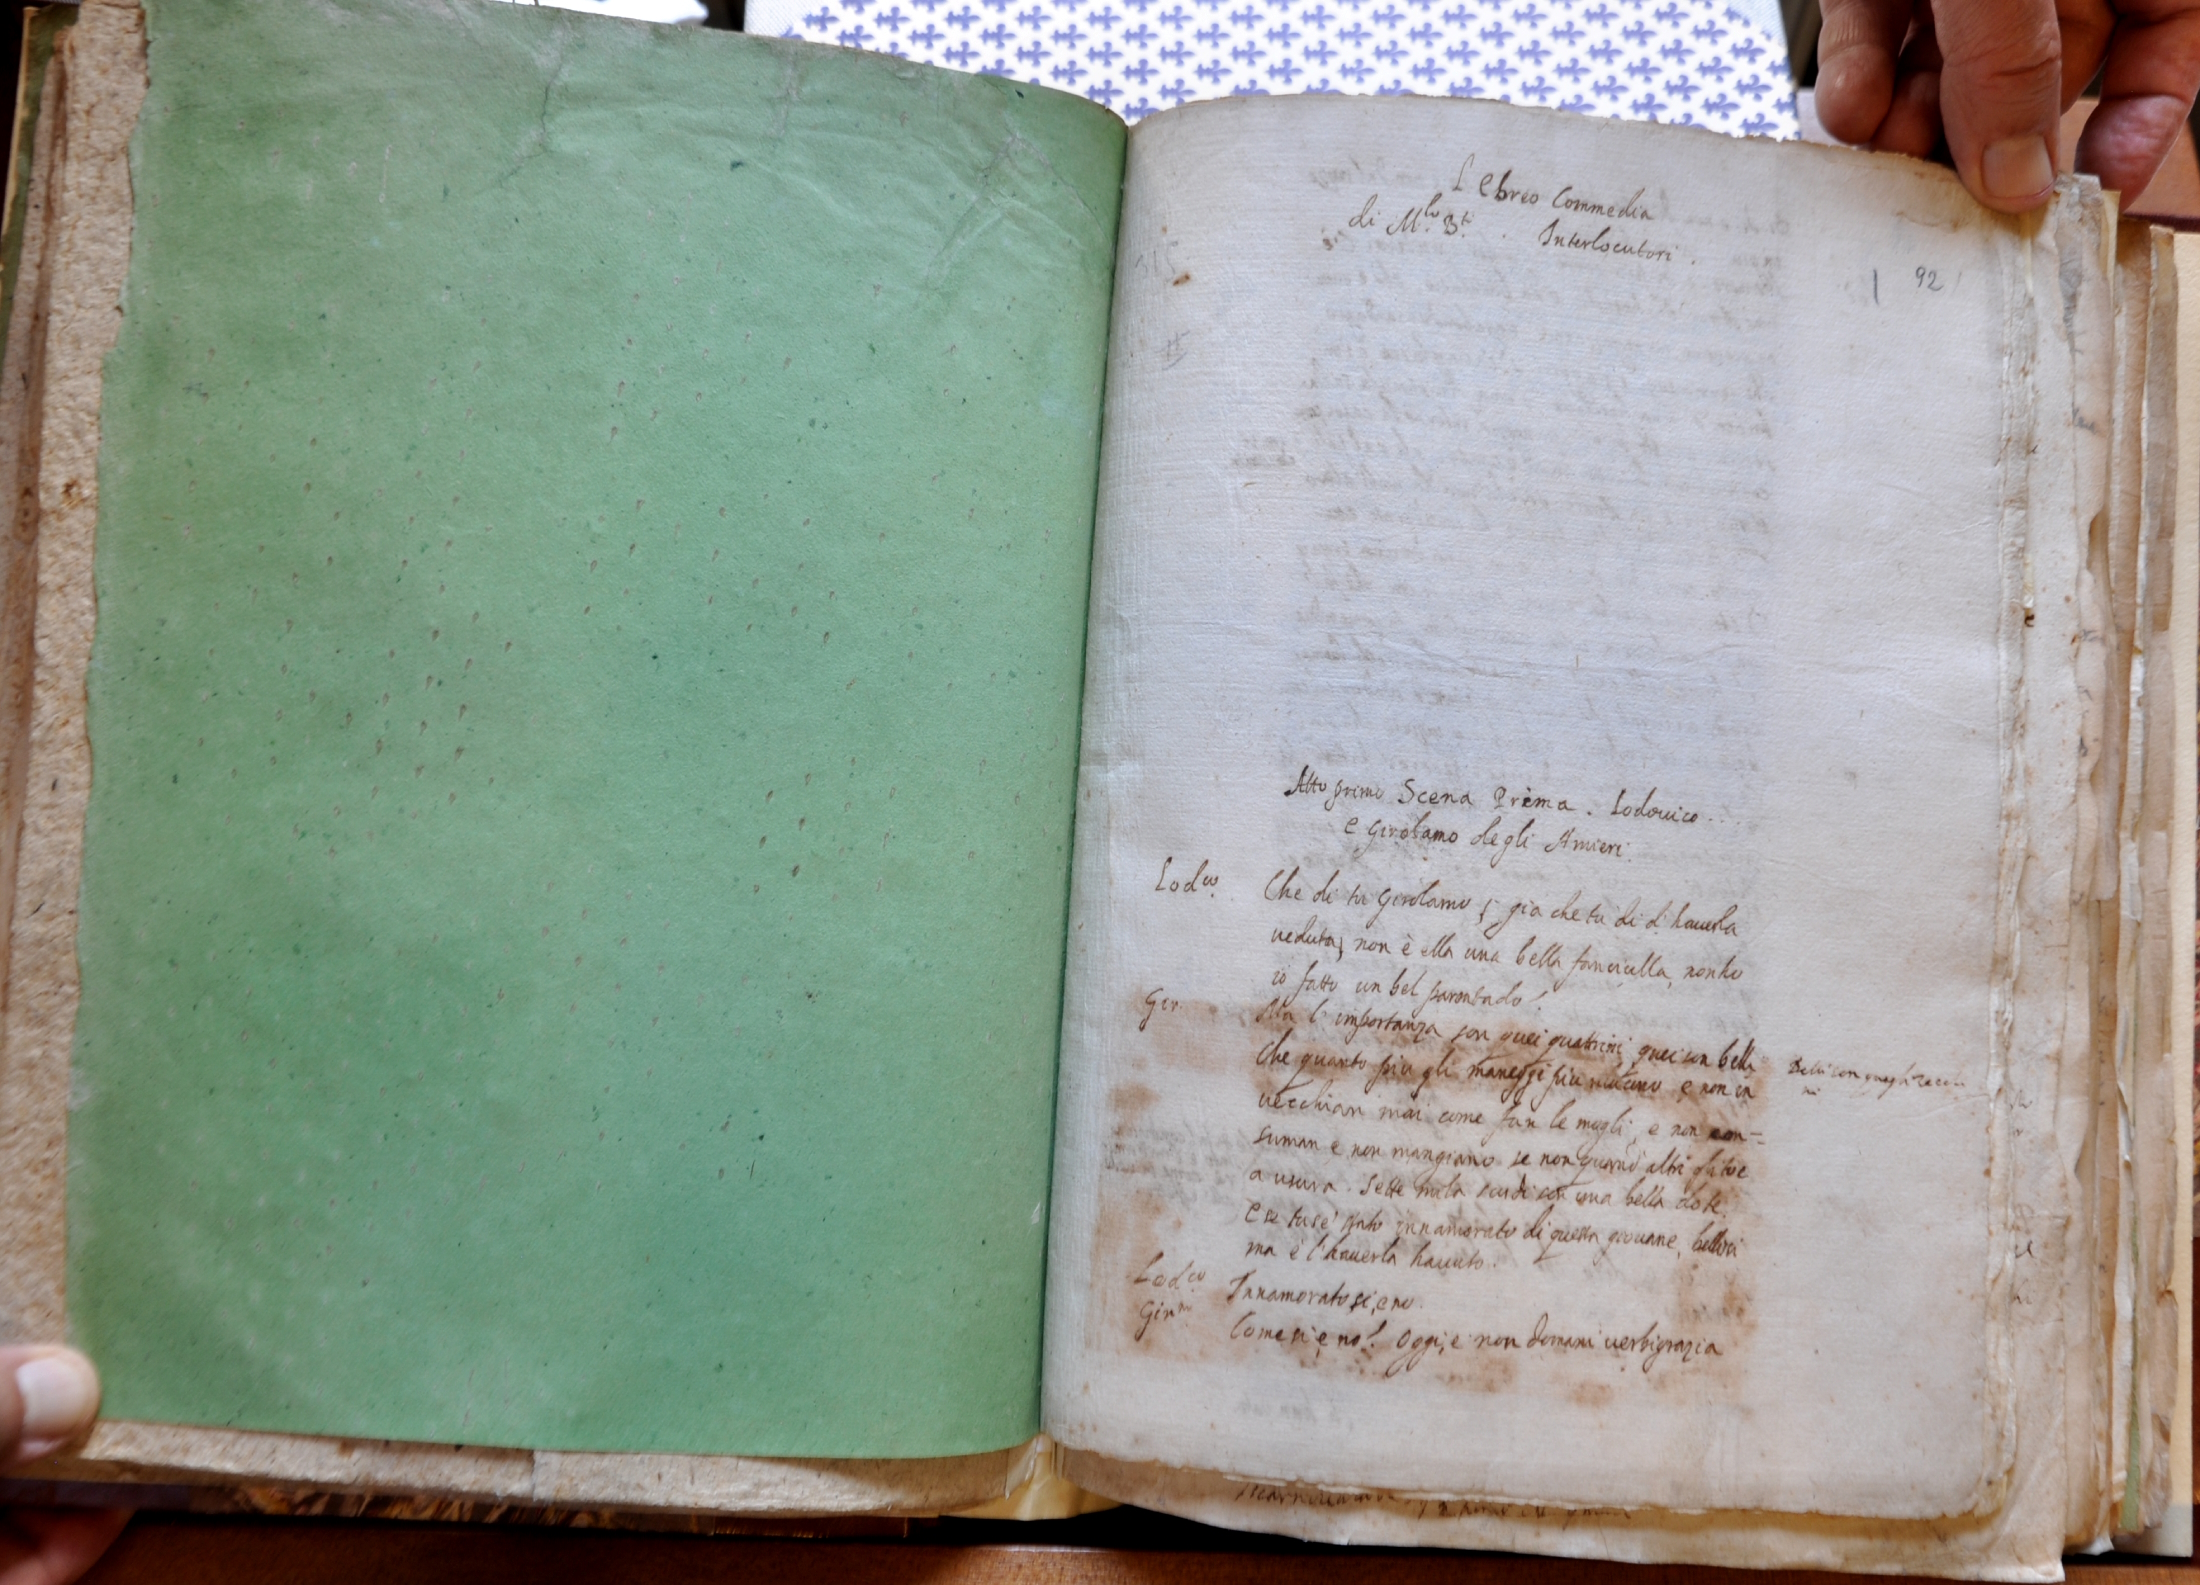 L'Ebreo Commedia
di M.lo B.ti . Interlocutori .
92
Atto primo Scena Prima . Lodovico
e Girolamo degli Amieri .
Lod.co Che di tu Girolamo, gia che tu di d'hauerla
ueduta, non è ella una bella fanciulla, non ho
io fatto un bel parentado!
Gir. Ma l'importanza son quei quattrini, quei son belli
Che quanto piu gli maneggi piu e non in
Belli son quegli zecchi
ni
uecchian mai come fan le mogli, e non con-
suman e non mangiano se non quand' altri
a usura . Sette mila scudi son una bella dote.
E se tu se' stato innamorato di questa giouane, bellissi
ma è l'hauerla hauuto .
Lod.co Innamorato si, e no .
Gir.mo Come si, e no! Oggi, e non domani uerbigrazia